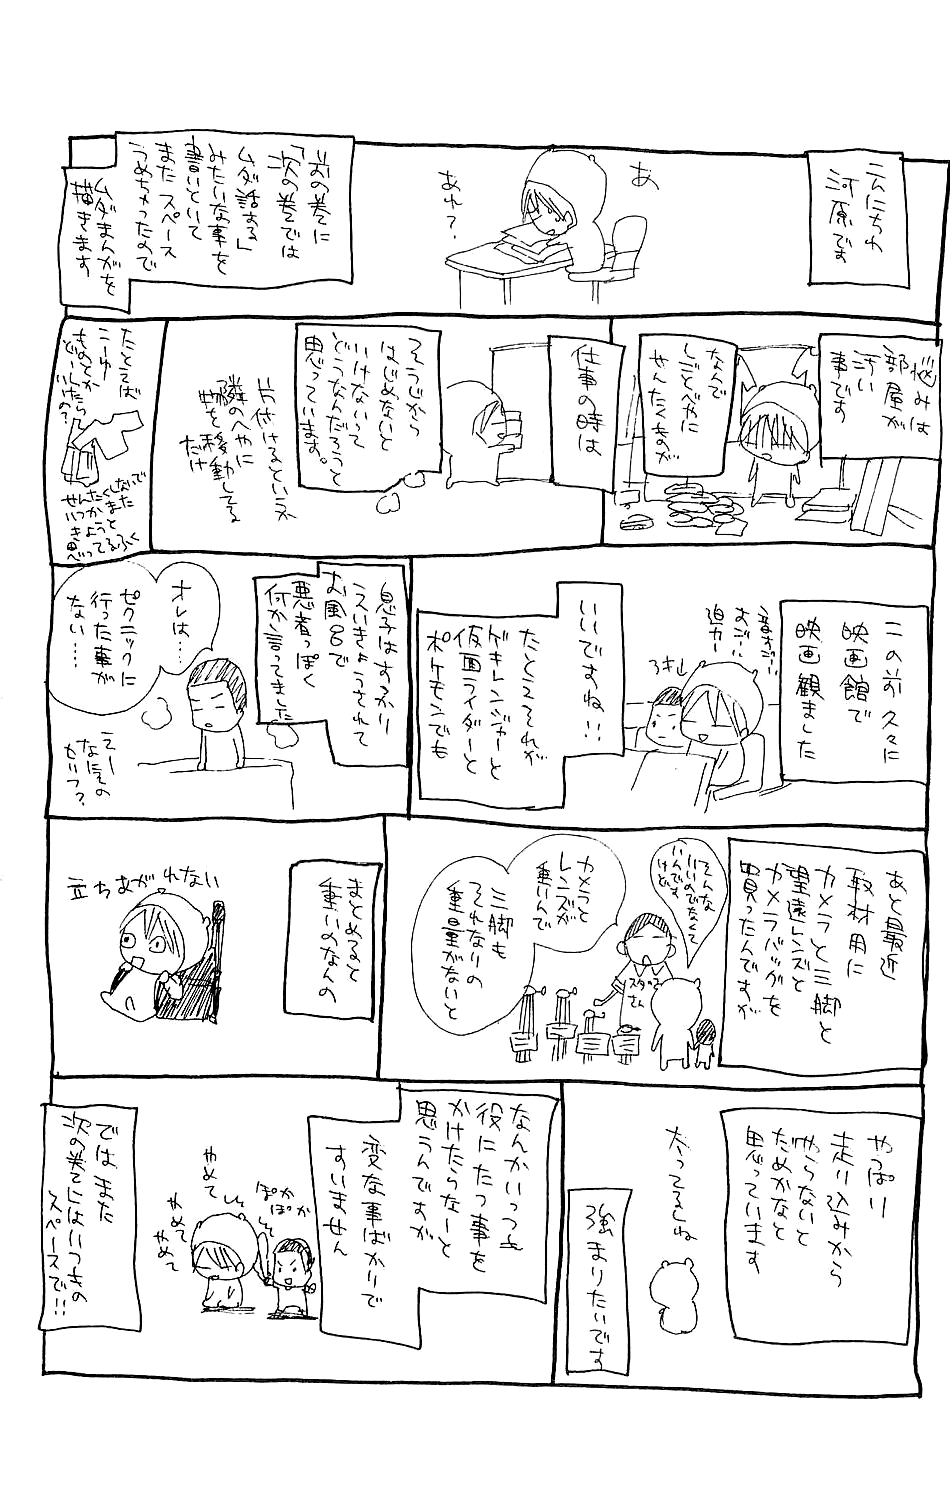 こんにちわ
河原です
あ
あれ?
前の巻に
「次の巻では
ムダ話する」
みたいな事を
書いといて
またスペース
うめちゃったので
ムダまんがを
描きます
悩みは
部屋が
汚い
事です
なんで
しごとべやに
せんたくものが
仕事の時は
そうじから
はじめないと
いけないって
どうなんだろうと
思っています。
片付けるといっても
隣のへやに
物を移動してる
だけ
たとえば
こーゆー
ものとか
どーしたら
いいの?
せんたくしないで
いつかまた
きようと
思ってるふく
この前久々に
映画館で
映画観ました
音すごーい
迫力ー
いいですね!!
たとえそれが
ゲキレンジャーと
仮面ライダーと
ポケモンでも
息子はすっかり
えいきょうされて
お風呂で
悪者っぽく
何か言ってました
オレは…
ピクニックに
行った事が
ない…
えー
なにその
セリフ?
あと最近
取材用に
カメラと三脚と
望遠レンズと
カメラバッグを
買ったんですが
そんな
いいのでなくて
いいんです
けど
スタッフ
さん
カメラと
レンズが
重いんで
三脚も
それなりの
重量がないと
まとめると
重いのなんの
立ちあがれない
やっぱり
走り込みから
やらないと
だめかなと
思っています
太ってるしね
強まりたいです
なんかいっつも
役にたつ事を
かけたらなーと
思うんですが
変な事ばかりで
すいません
ぽか
ぽか
やめて
やめて
やめて
ではまた
次の巻にはいつもの
スペースで!!